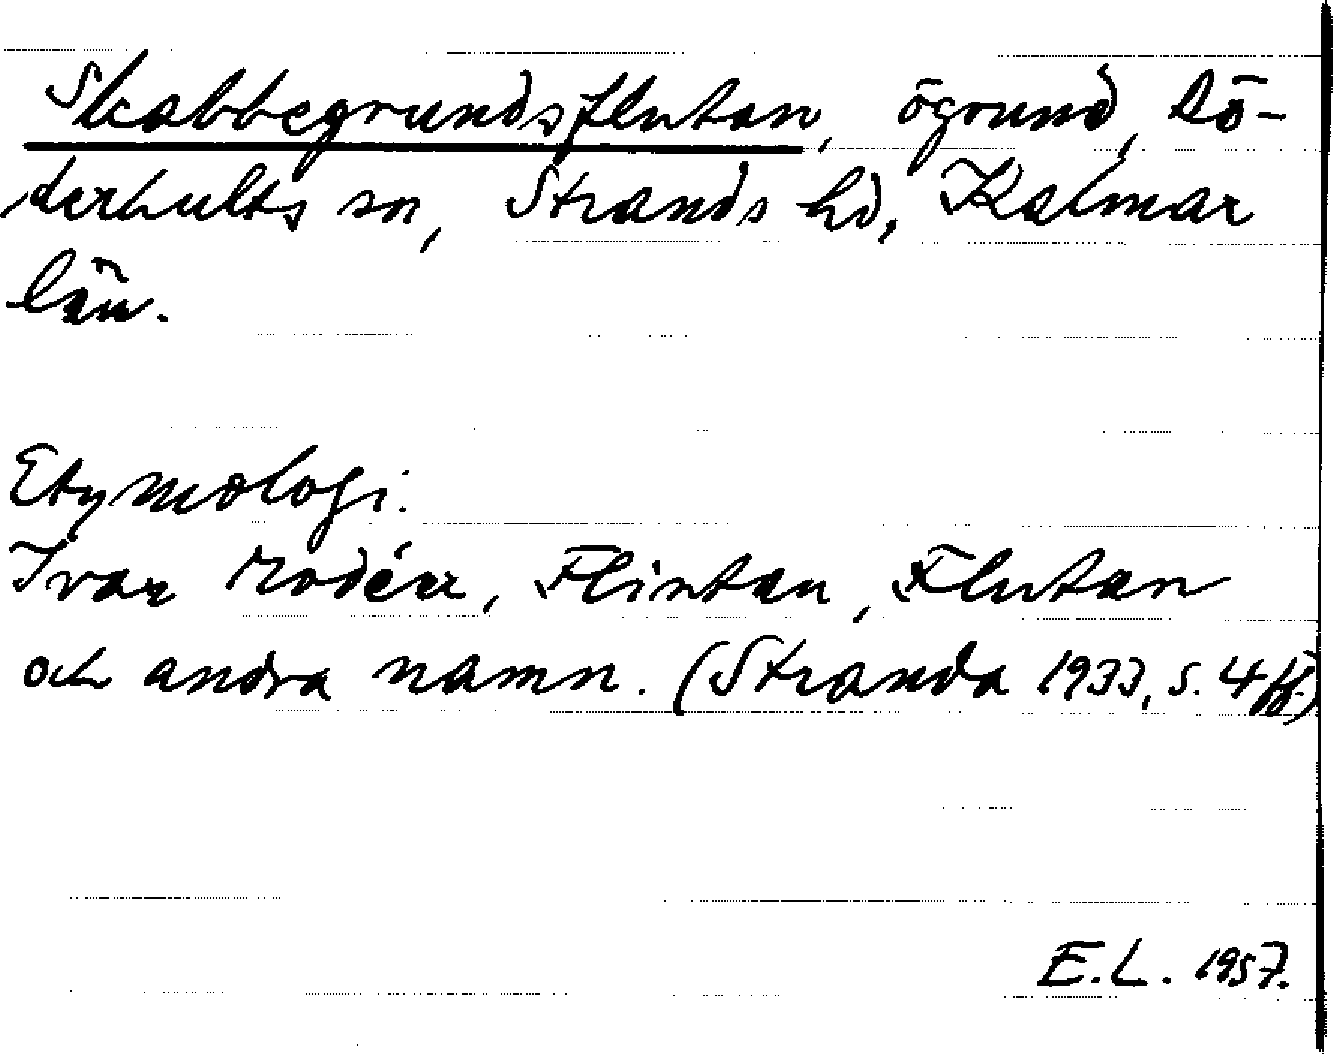 Skabbegrundsflutan, ögrund, Dö-
derhults sn, Stranda hd, Kalmar
län.
Etymologi.
Ivar Modéer, Flintan, Flutan
och andra namn. (Stranda 1933, s. 4 ff.)
E.L. 1957.